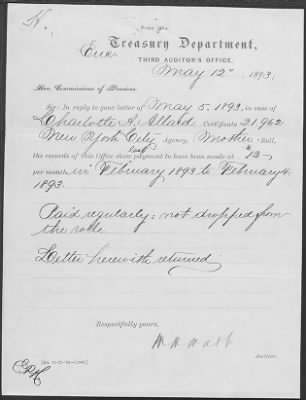 N.
Form 124.
Enc.
Treasury Department,
THIRD AUDITOR'S OFFICE.
May 12", 1893.
Hon. Commissioner of Pensions.
Sir: In reply to your letter of May 5, 1893, in case of
Charlotte A. Allard Certificate 21,962
New York City Agency, Mother Roll,
the records of this Office show last payment to have been made at $12–
per month, in February, 1893 to February 4
1893.
Paid regularly – not dropped from
the rolls
Letter herewith returned
Respectfully yours,
Auditor.